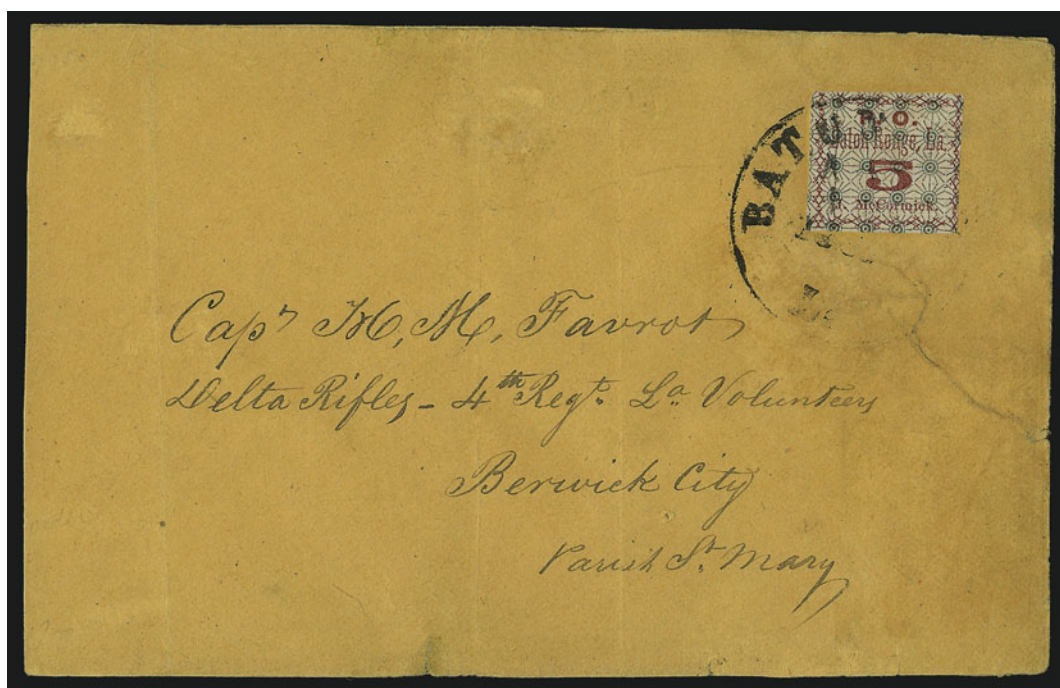 P. O.
Baton Rouge, La.
5
McCormick.
BATO
Capt H. M. Favrot
Delta Rifles - 4th Regt. La Volunteers
Berwick City
Parish St. Mary